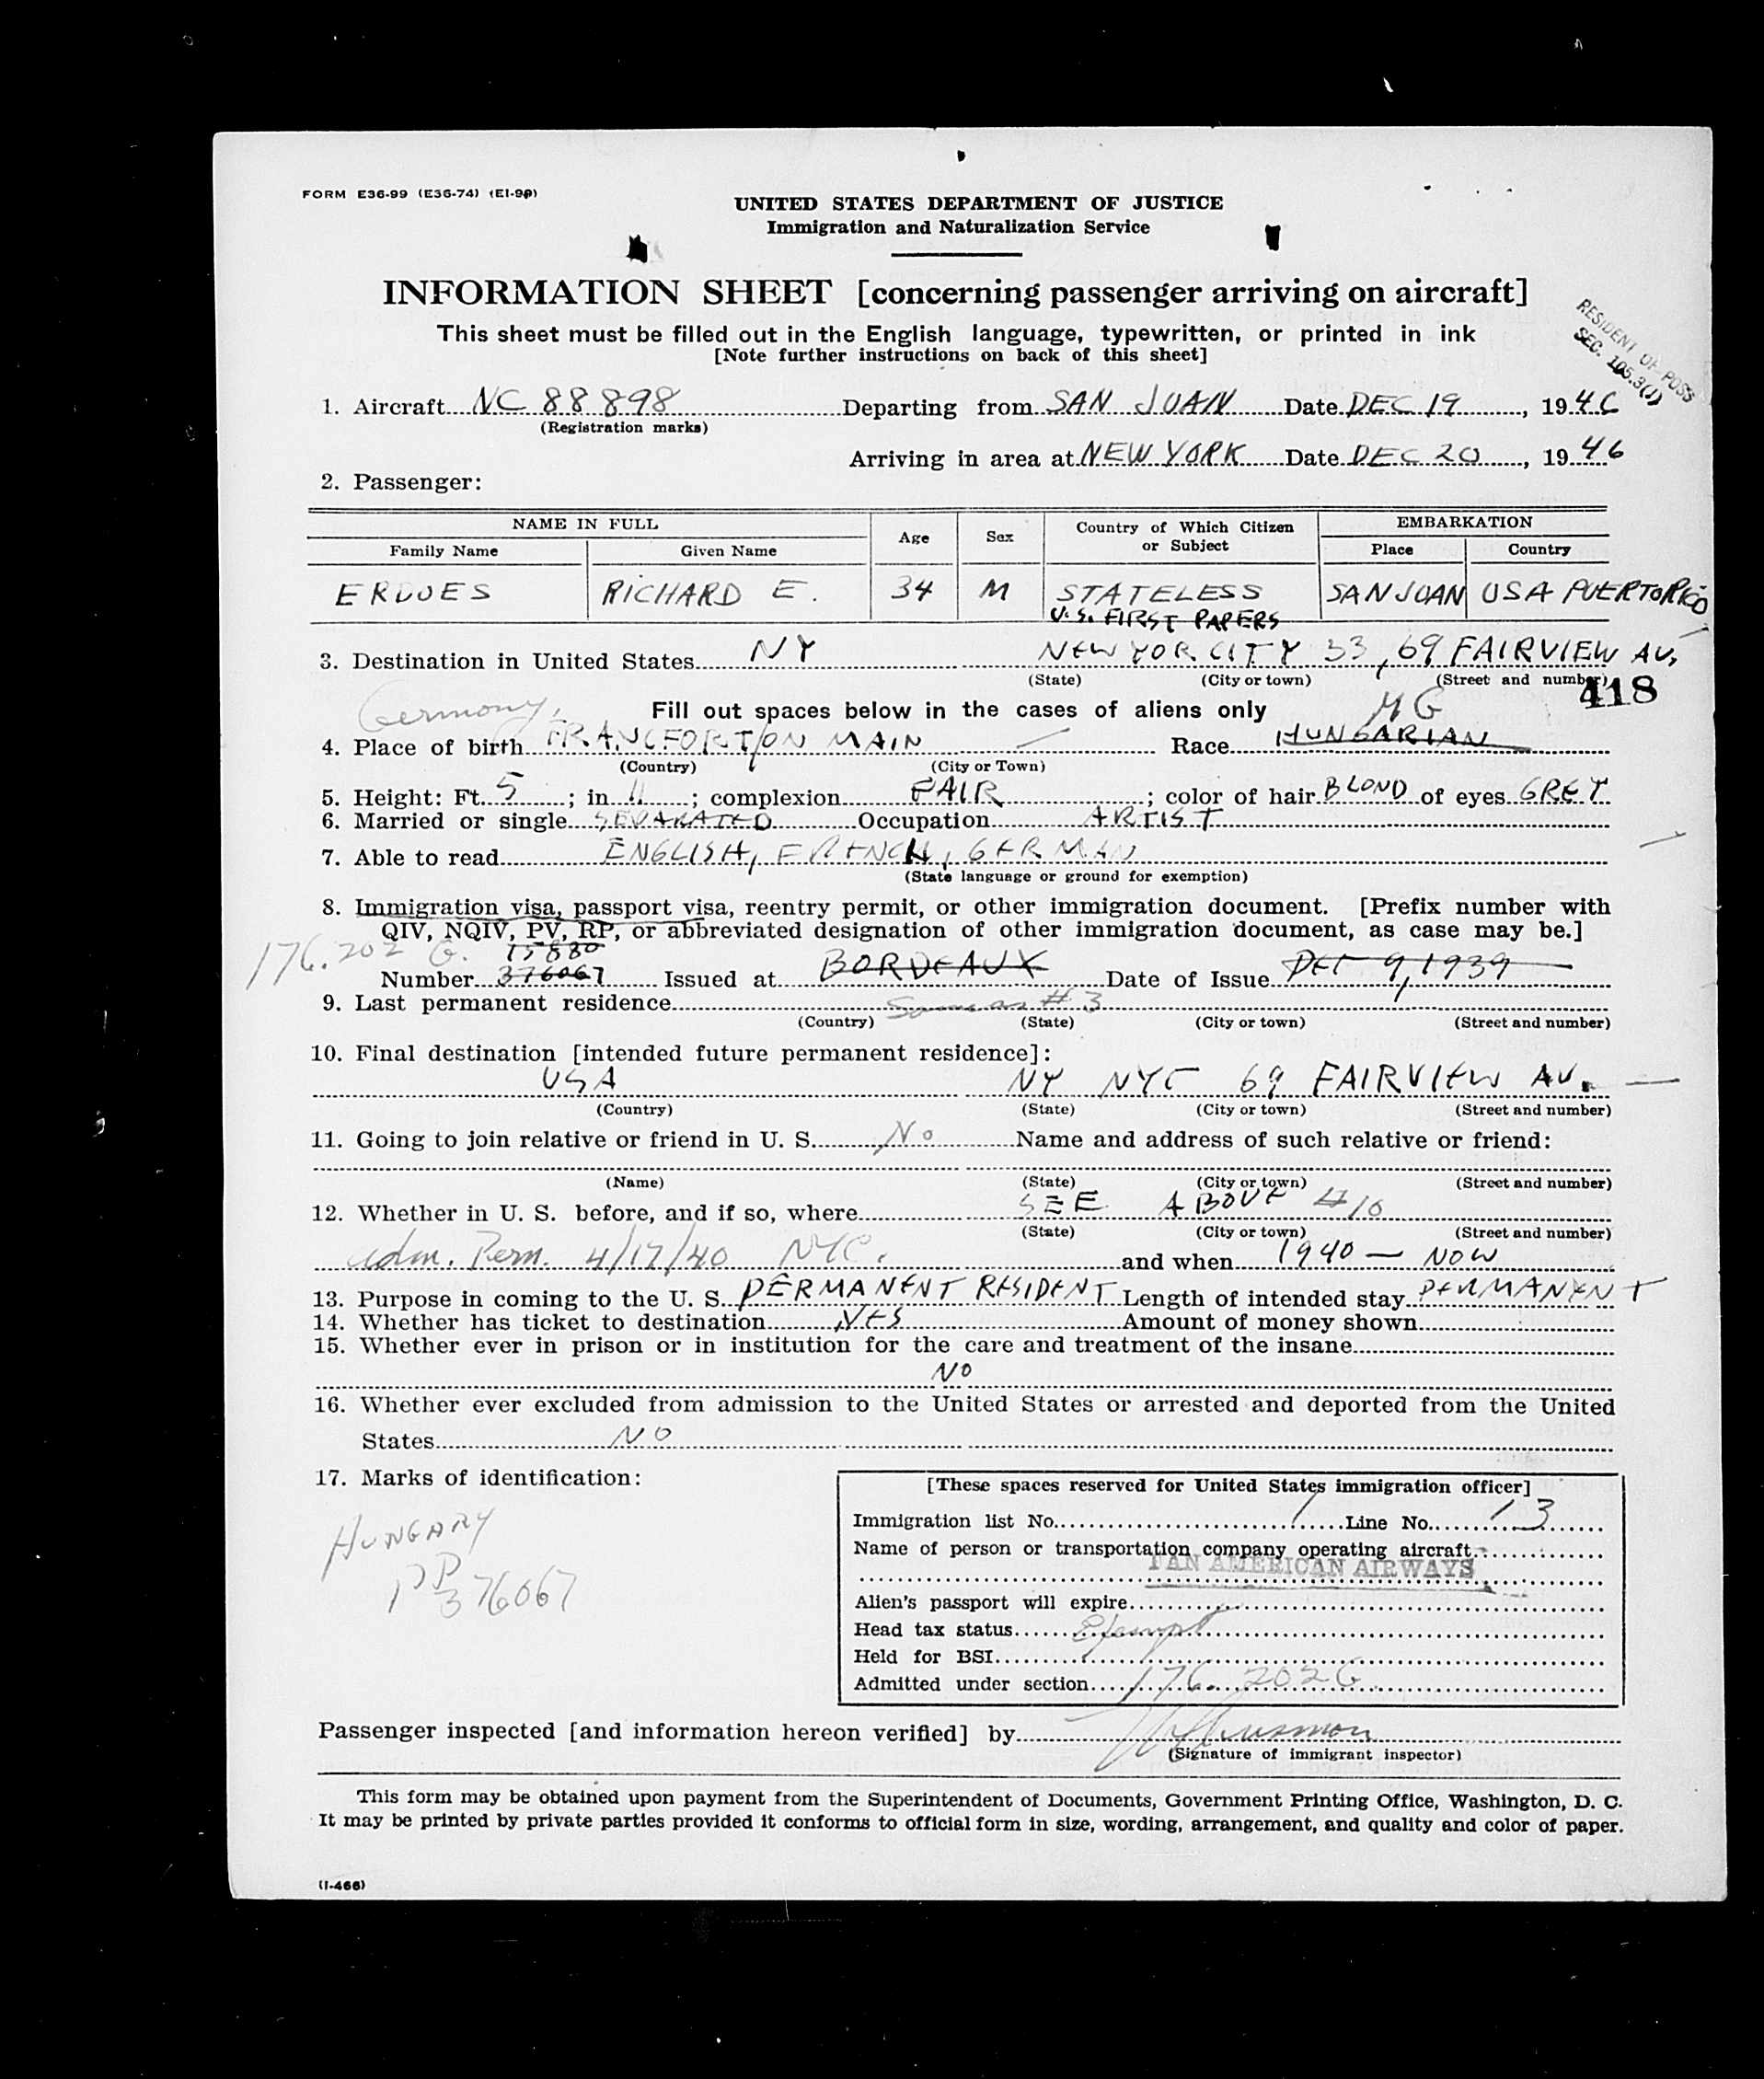 FORM E36-99 (E36-74) (EI-99)
UNITED STATES DEPARTMENT OF JUSTICE
Immigration and Naturalization Service
INFORMATION SHEET [concerning passenger arriving on aircraft]
This sheet must be filled out in the English language, typewritten, or printed in ink
[Note further instructions on back of this sheet]
RESIDENT OF POSS
SEC. 105.3(J)
1. Aircraft NC 88898 Departing from SAN JUAN Date DEC 19, 1946
(Registration marks)
Arriving in area at NEW YORK Date DEC 20, 1946
2. Passenger:
NAME IN FULL Age Sex Country of Which Citizen or Subject EMBARKATION
Family Name Given Name Place Country
ERDOES RICHARD E. 34 M STATELESS SAN JUAN USA PUERTORICO
U.S. FIRST PAPERS
3. Destination in United States NY NEW YOR CITY 33, 69 FAIRVIEW AV,
(State) (City or town) (Street and number)
418
Germany, Fill out spaces below in the cases of aliens only MG
4. Place of birth FRANCFORT/ON MAIN Race HUNGARIAN
(Country) (City or Town)
5. Height: Ft. 5; in. 11; complexion FAIR; color of hair BLOND of eyes GREY
6. Married or single SEPARATED Occupation ARTIST
7. Able to read ENGLISH, FRENCH, GERMAN
(State language or ground for exemption)
8. Immigration visa, passport visa, reentry permit, or other immigration document. [Prefix number with
QIV, NQIV, PV, RP, or abbreviated designation of other immigration document, as case may be.]
176.202 G. 15880
Number 376067 Issued at BORDEAUX Date of Issue DEC 9, 1939
9. Last permanent residence Same as #3
(Country) (State) (City or town) (Street and number)
10. Final destination [intended future permanent residence]:
USA NY NYC 69 FAIRVIEW AV.
(Country) (State) (City or town) (Street and number)
11. Going to join relative or friend in U. S. No Name and address of such relative or friend:
(Name) (State) (City or town) (Street and number)
12. Whether in U. S. before, and if so, where SEE ABOVE #10
(State) (City or town) (Street and number)
Adm. Perm. 4/17/40 NYC. and when 1940 — NOW
13. Purpose in coming to the U. S. PERMANENT RESIDENT Length of intended stay PERMANENT
14. Whether has ticket to destination YES Amount of money shown
15. Whether ever in prison or in institution for the care and treatment of the insane
NO
16. Whether ever excluded from admission to the United States or arrested and deported from the United
States NO
17. Marks of identification:
HUNGARY
PP
376067
[These spaces reserved for United States immigration officer]
Immigration list No. 1 Line No. 13
Name of person or transportation company operating aircraft
PAN AMERICAN AIRWAYS
Alien's passport will expire
Head tax status Exempt
Held for BSI
Admitted under section 176.202G
Passenger inspected [and information hereon verified] by
(Signature of immigrant inspector)
This form may be obtained upon payment from the Superintendent of Documents, Government Printing Office, Washington, D. C.
It may be printed by private parties provided it conforms to official form in size, wording, arrangement, and quality and color of paper.
(I-466)